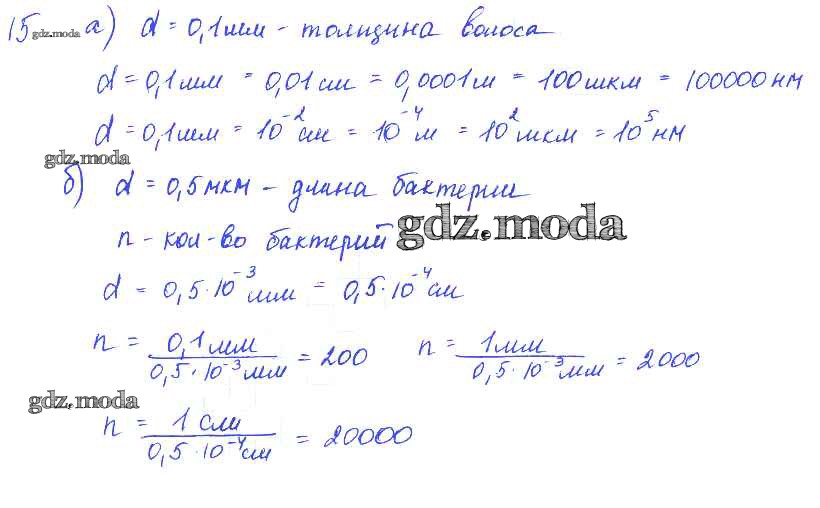 15 gdz.moda а) d = 0,1мм - толщина волоса
d = 0,1мм = 0,01см = 0,0001м = 100мкм = 100000нм
d = 0,1мм = 10⁻²см = 10⁻⁴м = 10²мкм = 10⁵нм
gdz.moda
б) d = 0,5мкм - длина бактерии
n - кол-во бактерий gdz.moda
d = 0,5·10⁻³мм = 0,5·10⁻⁴см
n = 0,1мм / 0,5·10⁻³мм = 200 n = 1мм / 0,5·10⁻³мм = 2000
gdz.moda
n = 1см / 0,5·10⁻⁴см = 20000